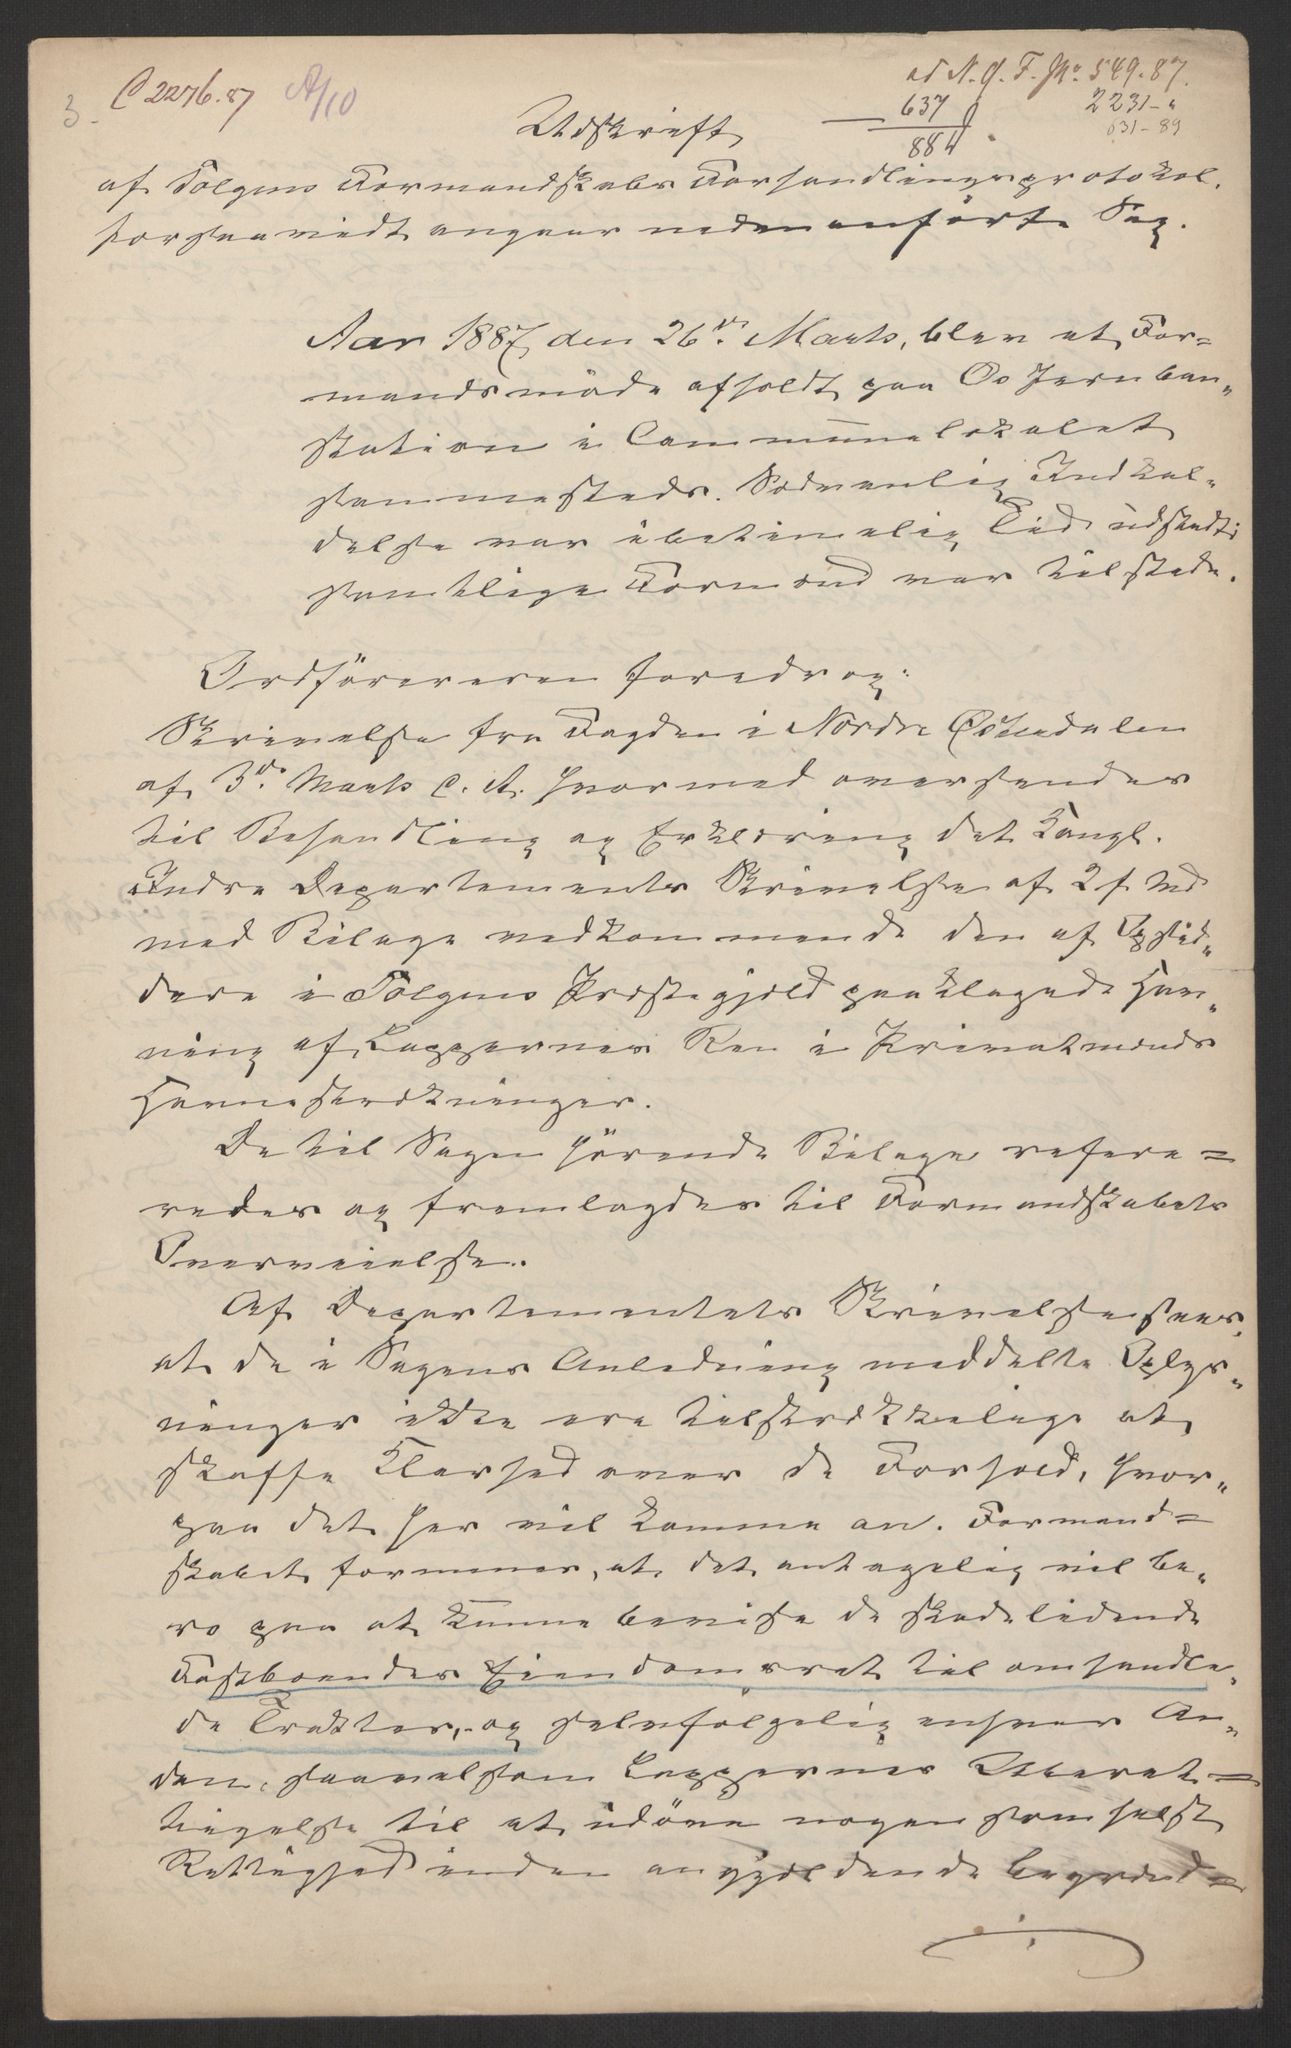 3.
C 2276.87 A/10
ad N. G. F. Jr. 549.87.
637
2231-"
884
631-89
Udskrift
af Tolgens Formandskabs Forhandlingsprotokol,
forsaavidt angaar nedenanførte Sag.
Aar 1887, den 26de Marts, blev et For=
mandsmøde afholdt paa Os Jernban„
station i Communelokalet
sammesteds. Sædvanlig Indkal„
delse var ibetimelig Tid udstedt;
samtlige Formænd var tilstede.
Ordføreren foredrog:
Skrivelse fra Fogden i Nordre Østerdalen
af 3de Marts c. A. hvormed oversendes
til Behandling og Erklæring det Kongl.
Indre Departements Skrivelse af 2 f. Md
med Bilage vedkommende den af Opsid„
dere i Tolgens Præstegjeld paaklagede Hav„
ning af Lappernes Ren i Privatmænds
Havnestrækninger.
De til Sagen hørende Bilage refere=
redes og fremlagdes til Formandskabets
Overveielse.
Af Departementets Skrivelse sees,
at de i Sagens Anledning meddelte Oplys„
ninger ikke ere tilstrækkelige at
skaffe Klarhed over de Forhold, hvor„
paa det her vil komme an. Formand=
skabet formener, at det antagelig vil be„
ro paa at kunne bevise de skadelidende
Fastboendes Eiendomsret til omhandle„
de Trakter, og selvfølgelig enhver An„
den, saavelsom Lappernes Uberet=
tigelse til at udøve nogensomhelst
Rettighed inden angjældende Begrænd=